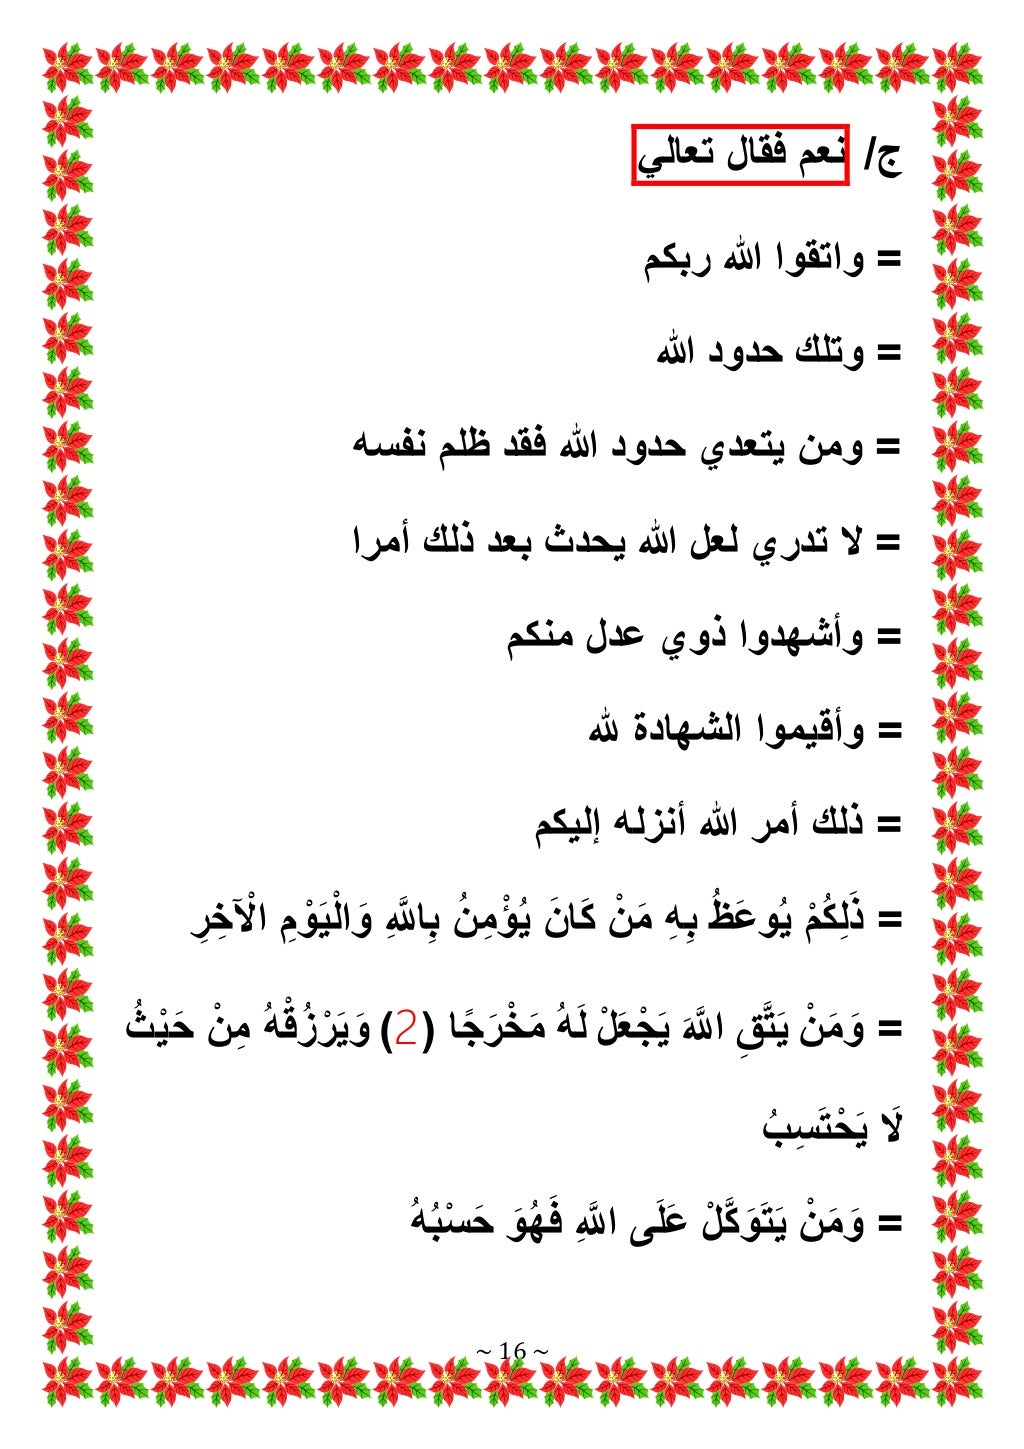 ج/ نعم فقال تعالي
= واتقوا الله ربكم
= وتلك حدود الله
= ومن يتعدي حدود الله فقد ظلم نفسه
= لا تدري لعل الله يحدث بعد ذلك أمرا
= وأشهدوا ذوي عدل منكم
= وأقيموا الشهادة لله
= ذلك أمر الله أنزله إليكم
= ذَلِكُمْ يُوعَظُ بِهِ مَنْ كَانَ يُؤْمِنُ بِاللَّهِ وَالْيَوْمِ الْآخِرِ
= وَمَنْ يَتَّقِ اللَّهَ يَجْعَلْ لَهُ مَخْرَجًا (2) وَيَرْزُقْهُ مِنْ حَيْثُ
لَا يَحْتَسِبُ
= وَمَنْ يَتَوَكَّلْ عَلَى اللَّهِ فَهُوَ حَسْبُهُ
~ 16 ~